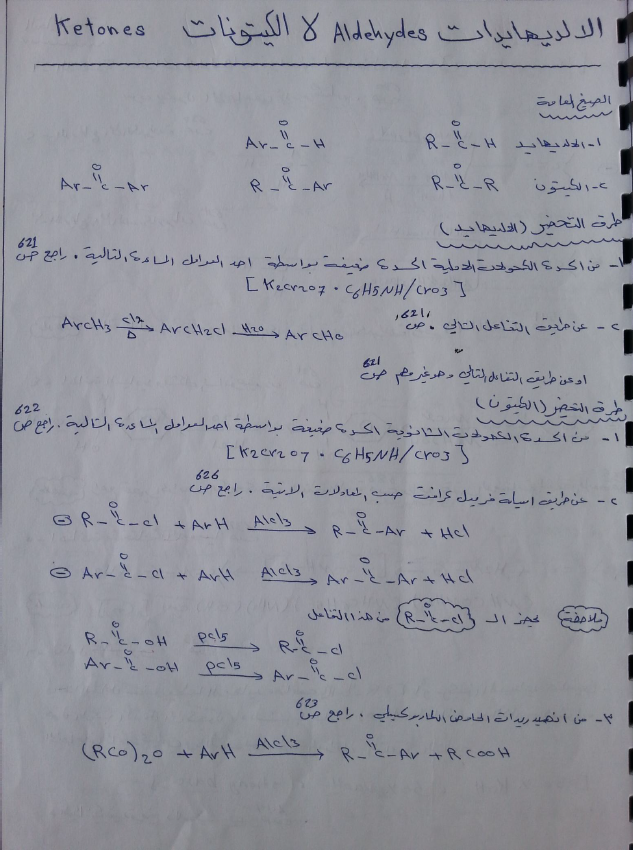 الالديهايدات Aldehydes & الكيتونات Ketones
الصيغ العامة
١- الالديهايد R-C(=O)-H Ar-C(=O)-H
٢- الكيتون R-C(=O)-R R-C(=O)-Ar Ar-C(=O)-Ar
طرق التحضير (الالديهايد)
١- من اكسدة الكحولات الاولية اكسدة ضعيفة بواسطة احد العوامل المؤكسدة التالية. راجع ص 621
[K2Cr2O7 . C6H5NH/CrO3]
٢- عن طريق التفاعل التالي. ص 621
ArCH3 Cl2/Δ → ArCH2Cl H2O → ArCHO
او عن طريق التفاعل التالي وهو غير مهم ص 621
طرق التحضير (الكيتون)
١- من اكسدة الكحولات الثانوية اكسدة ضعيفة بواسطة احد العوامل المؤكسدة التالية. راجع ص 622
[K2Cr2O7 . C6H5NH/CrO3]
٢- عن طريق اسيلة فريدل كرافت حسب المعادلات الاتية. راجع ص 626
R-C(=O)-Cl + ArH AlCl3 → R-C(=O)-Ar + HCl
Ar-C(=O)-Cl + ArH AlCl3 → Ar-C(=O)-Ar + HCl
ملاحظة يحضر الـ R-C(=O)-Cl من هذا التفاعل
R-C(=O)-OH PCl5 → R-C(=O)-Cl
Ar-C(=O)-OH PCl5 → Ar-C(=O)-Cl
٣- من انهيدريدات الحامض الكاربوكسيلي. راجع ص 623
(RCO)2O + ArH AlCl3 → R-C(=O)-Ar + RCOOH